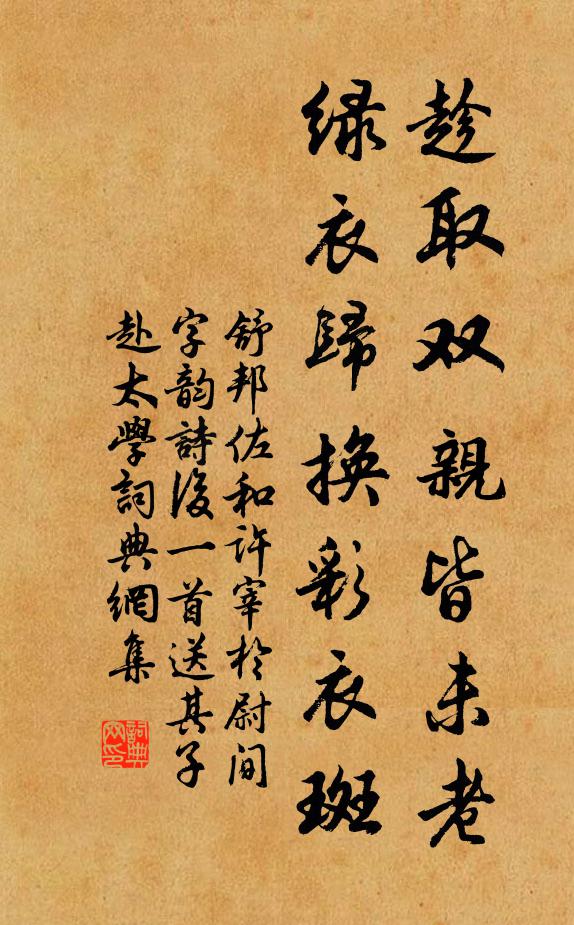 趁取双親皆未老
緑衣歸换彩衣斑
舒邦佐和許宰於尉间
字韵詩後一首送其子
赴太學詞典網集
詞典
网印